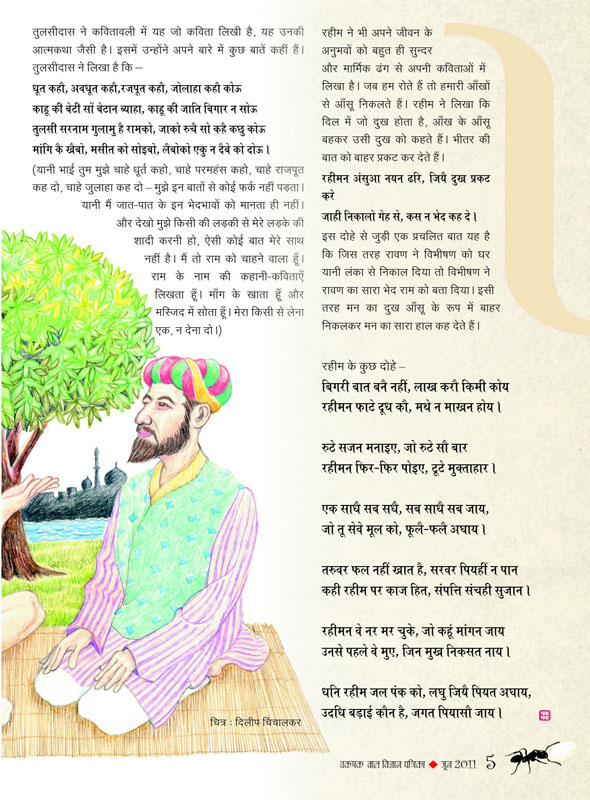 तुलसीदास ने कवितावली में यह जो कविता लिखी है, यह उनकी
आत्मकथा जैसी है। इसमें उन्होंने अपने बारे में कुछ बातें कहीं हैं।
तुलसीदास ने लिखा है कि –
धूत कहौ, अवधूत कहौ,रजपूत कहौ, जोलाहा कहौ कोऊ
काहू की बेटी सों बेटान ब्याहा, काहू की जाति बिगार न सोऊ
तुलसी सरनाम गुलामु है रामको, जाको रुचै सो कहै कछु कोऊ
मांगि कै खैबो, मसीत को सोइबो, लैबोको एकु न दैबे को दोऊ।
(यानी भाई तुम मुझे चाहे धूर्त कहो, चाहे परमहंस कहो, चाहे राजपूत
कह दो, चाहे जुलाहा कह दो – मुझे इन बातों से कोई फर्क नहीं पड़ता।
यानी मैं जात-पात के इन भेदभावों को मानता ही नहीं।
और देखो मुझे किसी की लड़की से मेरे लड़के की
शादी करनी हो, ऐसी कोई बात मेरे साथ
नहीं है। मैं तो राम को चाहने वाला हूँ।
राम के नाम की कहानी-कविताएँ
लिखता हूँ। माँग के खाता हूँ और
मस्जिद में सोता हूँ। मेरा किसी से लेना
एक, न देना दो।)
चित्र : दिलीप चिंचालकर
रहीम ने भी अपने जीवन के
अनुभवों को बहुत ही सुन्दर
और मार्मिक ढंग से अपनी कविताओं में
लिखा है। जब हम रोते हैं तो हमारी आँखों
से आँसू निकलते हैं। रहीम ने लिखा कि
दिल में जो दुख होता है, आँख के आँसू
बहकर उसी दुख को कहते हैं। भीतर की
बात को बाहर प्रकट कर देते हैं।
रहीमन अंसुआ नयन ढरि, जियै दुख प्रकट
करे
जाही निकालो गेह से, कस न भेद कह दे।
इस दोहे से जुड़ी एक प्रचलित बात यह है
कि जिस तरह रावण ने विभीषण को घर
यानी लंका से निकाल दिया तो विभीषण ने
रावण का सारा भेद राम को बता दिया। इसी
तरह मन का दुख आँसू के रूप में बाहर
निकलकर मन का सारा हाल कह देते हैं।
रहीम के कुछ दोहे –
बिगरी बात बनै नहीं, लाख करौ किमी कोय
रहीमन फाटे दूध कौ, मथे न माखन होय।
रुठे सजन मनाइए, जो रुठे सौ बार
रहीमन फिर-फिर पोइए, टूटे मुक्ताहार।
एक साधै सब सधै, सब साधै सब जाय,
जो तू सेवे मूल को, फूलै-फलै अघाय।
तरुवर फल नहीं खात है, सरवर पियहीं न पान
कही रहीम पर काज हित, संपत्ति संचही सुजान।
रहीमन वे नर मर चुके, जो कहूं मांगन जाय
उनसे पहले वे मुए, जिन मुख निकसत नाय।
धनि रहीम जल पंक को, लघु जियै पियत अघाय,
उदधि बड़ाई कौन है, जगत पियासौ जाय।
चकमक बाल विज्ञान पत्रिका ◆ जून 2011 5